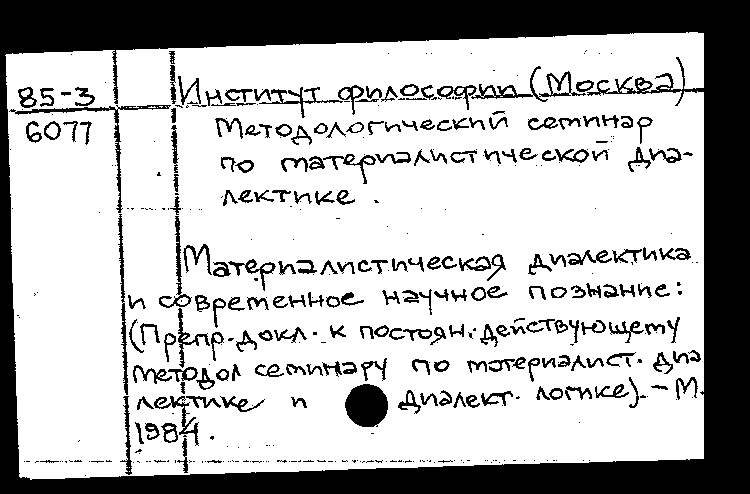 85-3
6077
Институт философии (Москва)
Методологический семинар
по материалистической диа-
лектике.
Материалистическая диалектика
и современное научное познание:
(Препр. докл. к постоян. действующему
методол семинару по материалист. диа
лектике и диалект. логике). - М.
1984.